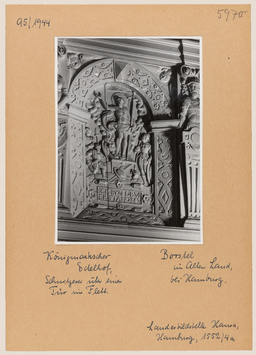 95/1944
5970
Königmarkscher
Edelhof,
Schnitzerei über einer
Tür im Flett.
Borstel
im Alten Land,
bei Hamburg.
Landesbildstelle Hansa,
Hamburg, 1552/4a